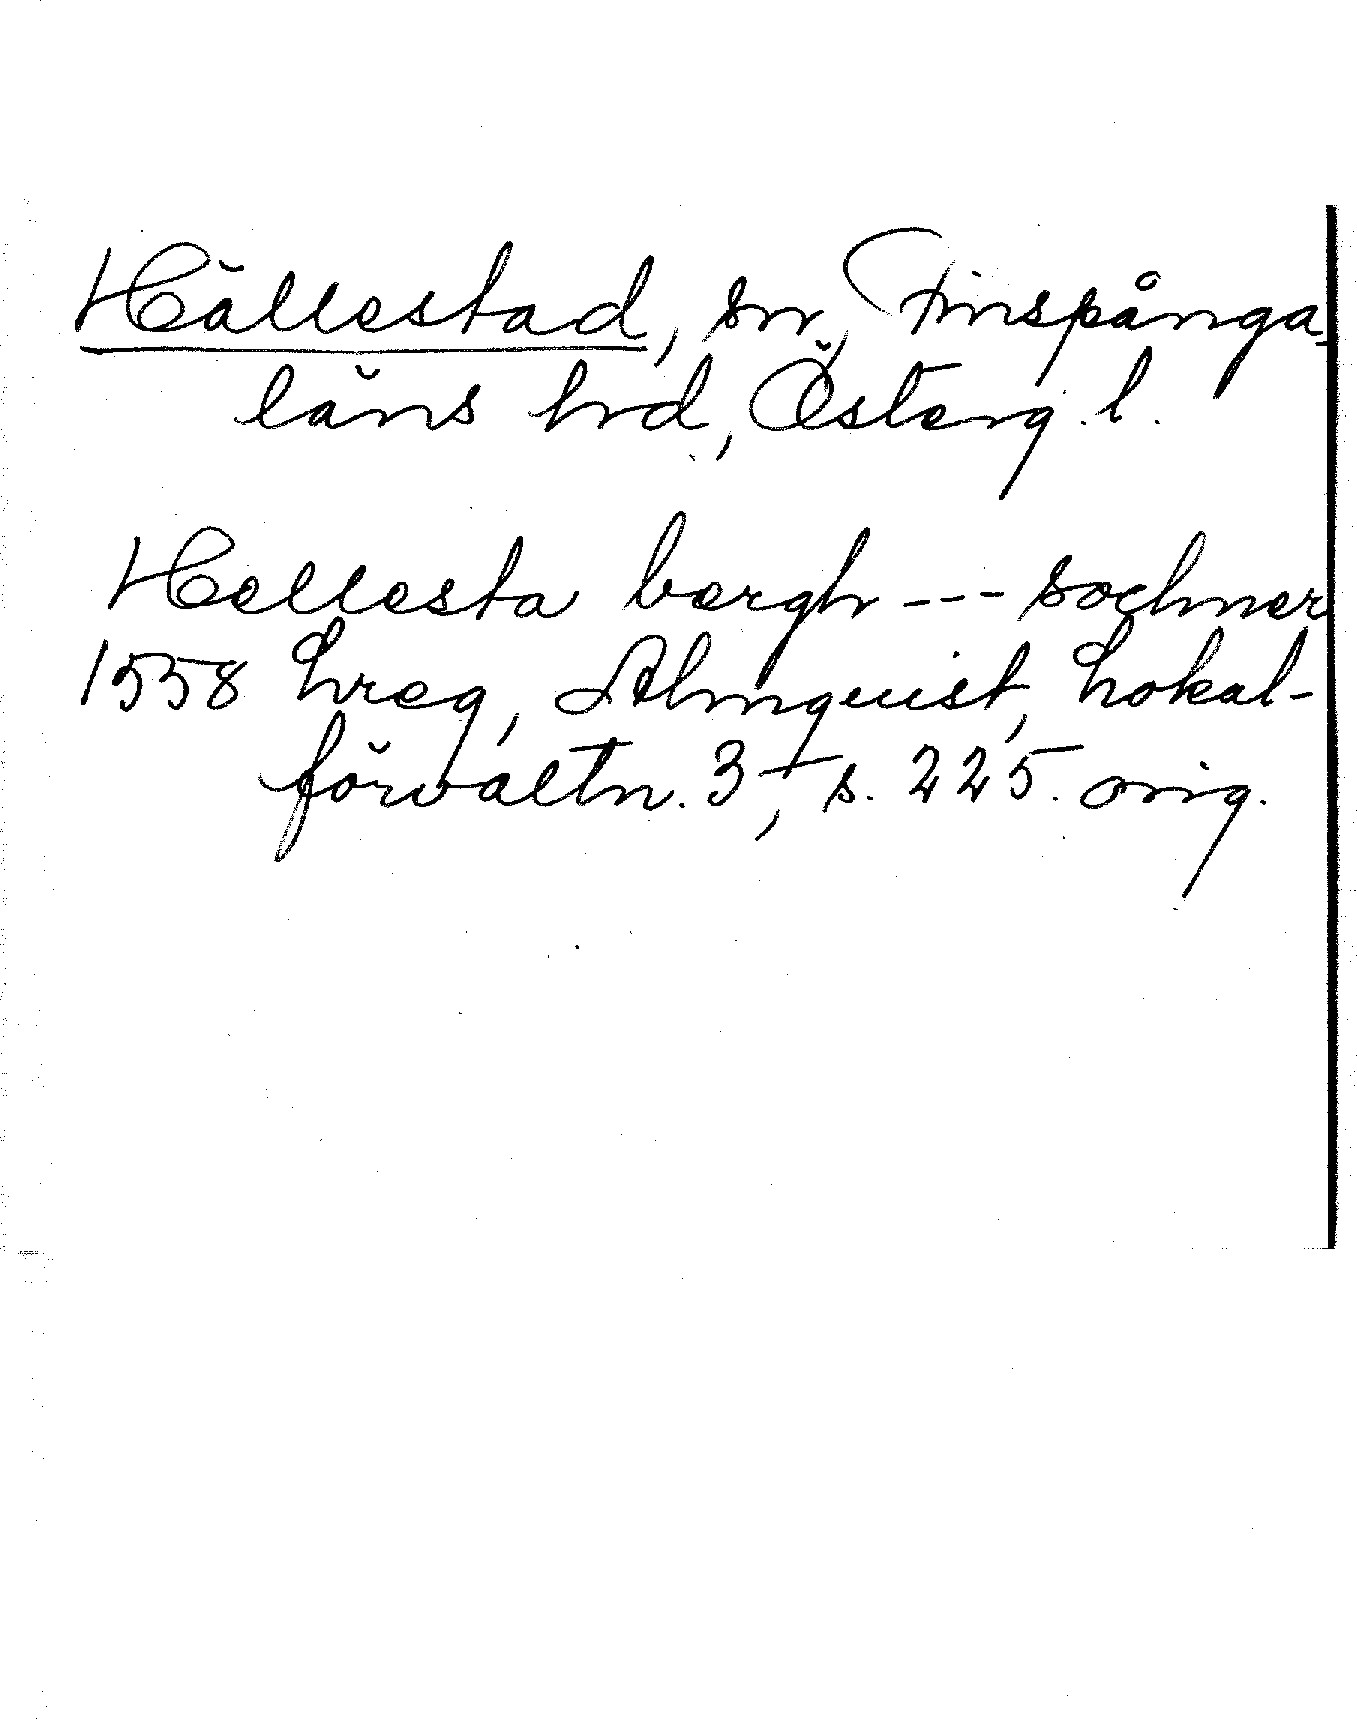 Hällestad, sn, Finspånga-
läns hd, Österg. l.
Hellesta bergh --- sochner
1558 Lreg, Almquist, Lokal-
förvaltn. 3, s. 225. orig.